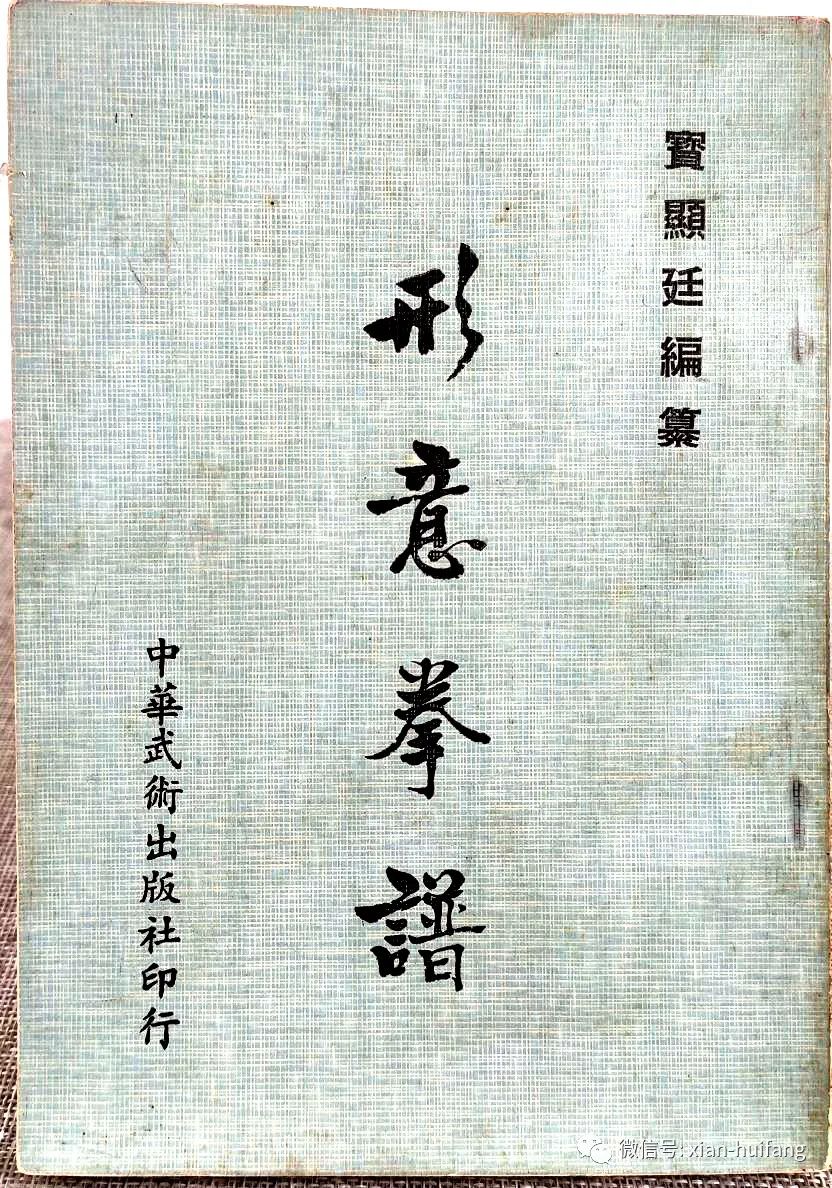 寳顯廷編纂
形意拳譜
中華武術出版社印行
微信号: xian-huifang